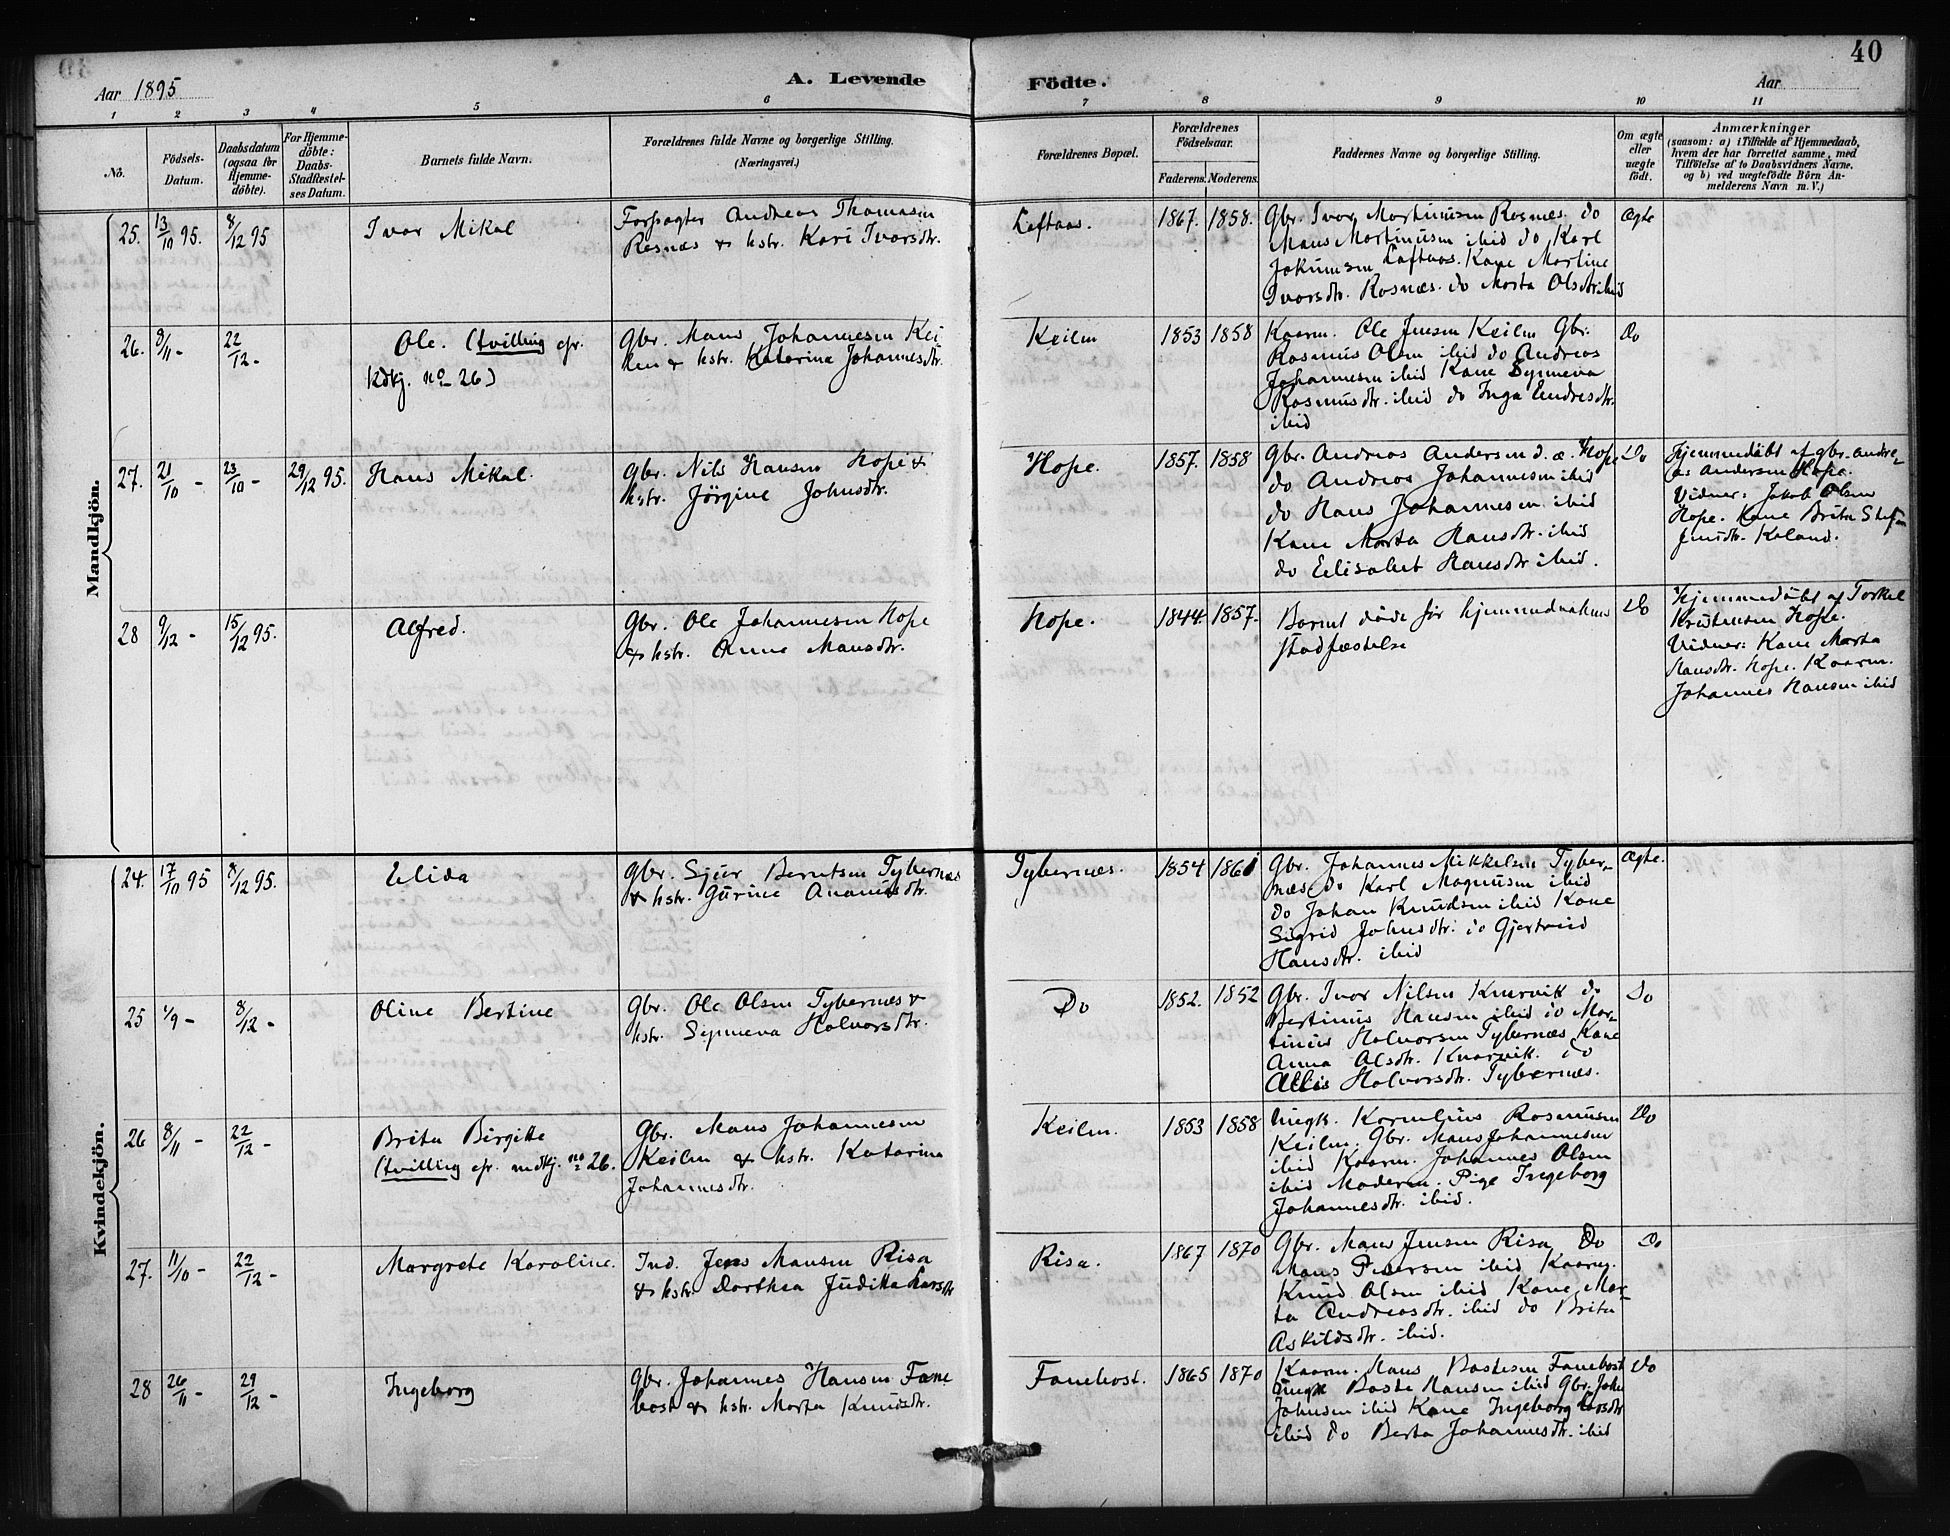 40
Aar 1895
A. Levende Födte.
Aar
1 2 3 4 5 6 7 8 9 10 11
No.
Födsels-
Datum.
Daabsdatum
(ogsaa for
Hjemme-
döbte).
For Hjemme-
döbte:
Daabs-
Stadfæstel-
ses Datum.
Barnets fulde Navn.
Forældrenes fulde Navne og borgerlige Stilling.
(Næringsvei.)
Forældrenes Bopæl.
Forældrenes
Födselsaar.
Faderens. Moderens.
Faddernes Navne og borgerlige Stilling.
Om ægte
eller
uægte
födt.
Anmærkninger
(saasom: a) i Tilfælde af Hjemmedaab,
hvem der har forrettet samme, med
Tilföielse af to Daabsvidners Navne.
og b) ved uægtefödte Börn An-
melderens Navn m. V.)
Mandkjön.
25. 13/10 95. 8/12 95
Ivar Mikal
Forpagter Andreas Thomasen
Rosnæs & hstr. Kari Ivarsdtr.
Loftaas. 1867. 1858.
Gbr. Ivar Martinusen Rosnæs. do
Mons Martinusen ibid do Karl
Jokumsen Loftaas. Kone Martine
Ivarsdtr. Rosnæs. do Marta Olsdtr. ibid
Ægte
26. 8/11 - 22/12 -
Ole. (tvilling cfr.
kvkj. no 26)
Gbr. Mans Johannesen Kei-
len & hstr. Katarina Johannesdtr.
Keilen 1853 1858
Kaarm. Ole Jensen Keilen Gbr.
Rasmus Olsen ibid do Andreas
Johannesen ibid Kone Synneva
Rasmusdtr. ibid do Inga Endresdtr.
ibid
Do
27. 21/10 - 23/10 - 29/12 95.
Hans Mikal.
Gbr. Nils Hansen Hope &
hstr. Jörgine Johnsdtr.
Hope. 1857. 1858
Gbr. Andreas Andersen d. æ. Hope
do Andreas Johannesen ibid
do Hans Johannesen ibid
Kone Marta Hansdtr. ibid
do Eilisabet Hansdtr ibid.
Do
Hjemmedöbt af gbr. Andre-
as Andersen Hope.
Vidner: Jakob Olsen
Hope. Kone Brita
Jensdtr. Kaland.
28 9/12 - 15/12 95.
Alfred.
Gbr. Ole Johannesen Hope
& hstr. Anna Mansdtr.
Hope. 1844. 1857.
Barnet döde för hjemmedaabens
stadfæstelse
Do
Hjemmedöbt af Torkel
Kristensen Hope.
Vidner: Kone Marta
Hansdtr. Hope. Kaarm.
Johannes Hansen ibid
Kvindekjön.
24. 17/10 95 8/12 95.
Elida
Gbr. Sjur Berntsen Tybernæs
& hstr. Gurine Ananiasdtr.
Tybernæs. 1854 1861
Gbr. Johannes Mikkelsen Tyber-
næs. do Karl Magnusen ibid
do Johan Knudsen ibid Kone
Sigrid Johnsdtr. do Gjertrud
Hansdtr. ibid
Ægte.
25 /9 - 8/12 -
Oline Bertine
Gbr. Ole Olsen Tybernæs &
hstr. Synneva Halvorsdtr.
Do 1852. 1852
Gbr. Ivar Nilsen Knarvik do
Bertinus Hansen ibid do Mar-
tinus Halvorsen Tybernæs Kone
Anna Olsdtr. Knarvik. do
Halvorsdtr. Tybernæs.
Do
26 8/11 - 22/12 -
Brita Birgitte
(tvilling cfr. mdkj. no 26.
Gbr. Mans Johannesen
Keilen & hstr. Katarina
Johannesdtr.
Keilen. 1853 1858
Ungk. Kornelius Rasmusen
Keilen. Gbr. Mans Johannesen
ibid Kaarm. Johannes Olsen
ibid Moderen. Pige Ingeborg
Johannesdtr. ibid.
Do
27. 11/10 - 22/12 -
Margrete Karoline.
Ind. Jens Mansen Risa
& hstr. Dorthea Juditta Larsdtr
Risa. 1867 1870
Gbr. Mans Jensen Risa Do
Mans Petersen ibid Kaarm.
Knud Olsen ibid Kone Mar-
ta Andreasdtr. ibid do Brita
Askildsdtr. ibid.
Do
28 26/11 - 29/12 -
Ingeborg
Gbr. Johannes Hansen Fane
bost & hstr. Marta Knudsdtr.
Fanebost. 1865 1870
Kaarm. Hans Bastesen Fanebost
Ungk Baste Hansen ibid Gbr. John
Johnsen ibid Kone Ingeborg Larsdtr
ibid do Berta Johannesdtr. ibid
Do